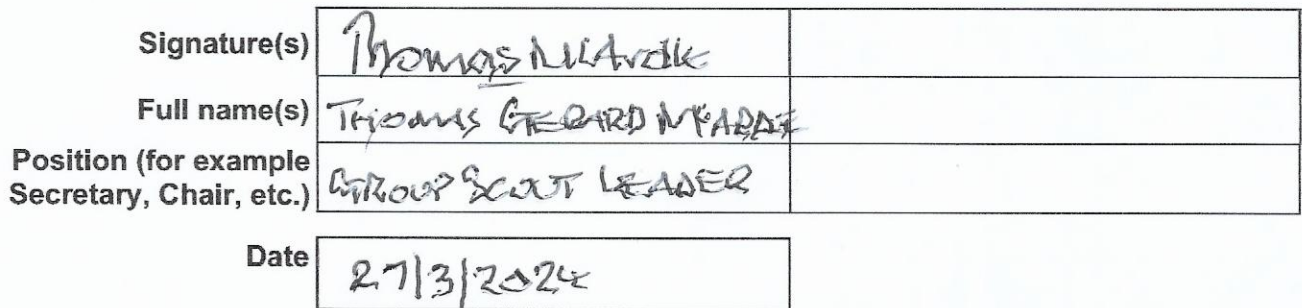 Signature(s) Thomas McArdle
Full name(s) THOMAS GERARD McARDLE
Position (for example
Secretary, Chair, etc.) GROUP SCOUT LEADER
Date 27/3/2024